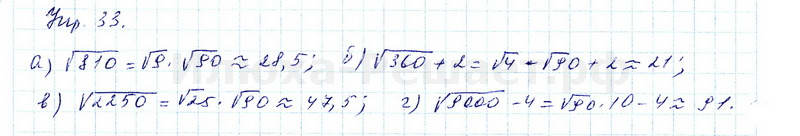 Упр 33.
а) √810 = √9 · √90 ≈ 28,5; б) √360 + 2 = √4 · √90 + 2 ≈ 21;
в) √2250 = √25 · √90 ≈ 47,5; г) √9000 - 4 = √90 · 10 - 4 ≈ 91.